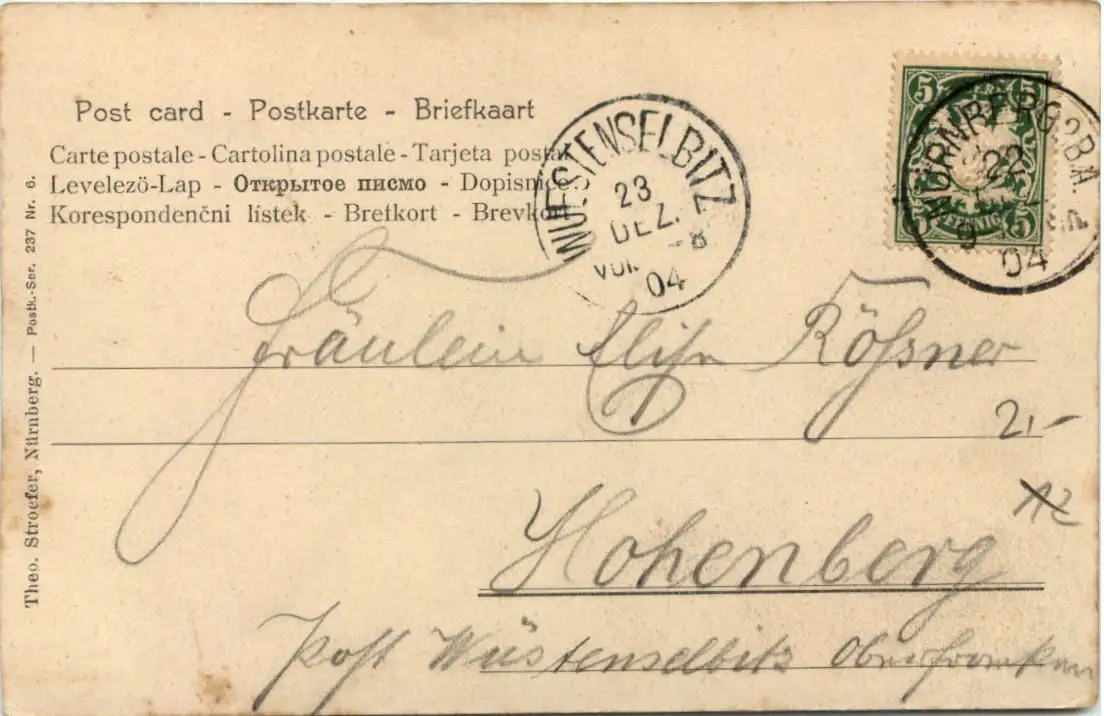 Post card - Postkarte - Briefkaart
Carte postale - Cartolina postale - Tarjeta postal
Levelező-Lap - Открытое письмо - Dopisnice
Korespondenčni lístek - Brefkort - Brevkort
Theo. Stroefer, Nürnberg. — Postk.-Ser. 237 Nr. 6.
WUESTENSELBITZ
23
DEZ.
VOR. 8
04
5 5
NÜRNBERG 2 B.A.
22
9
04
5 PFENNIG 5
Fräulein Elise Rößner
2,-
Hohenberg
Post Wüstenselbitz Oberfranken